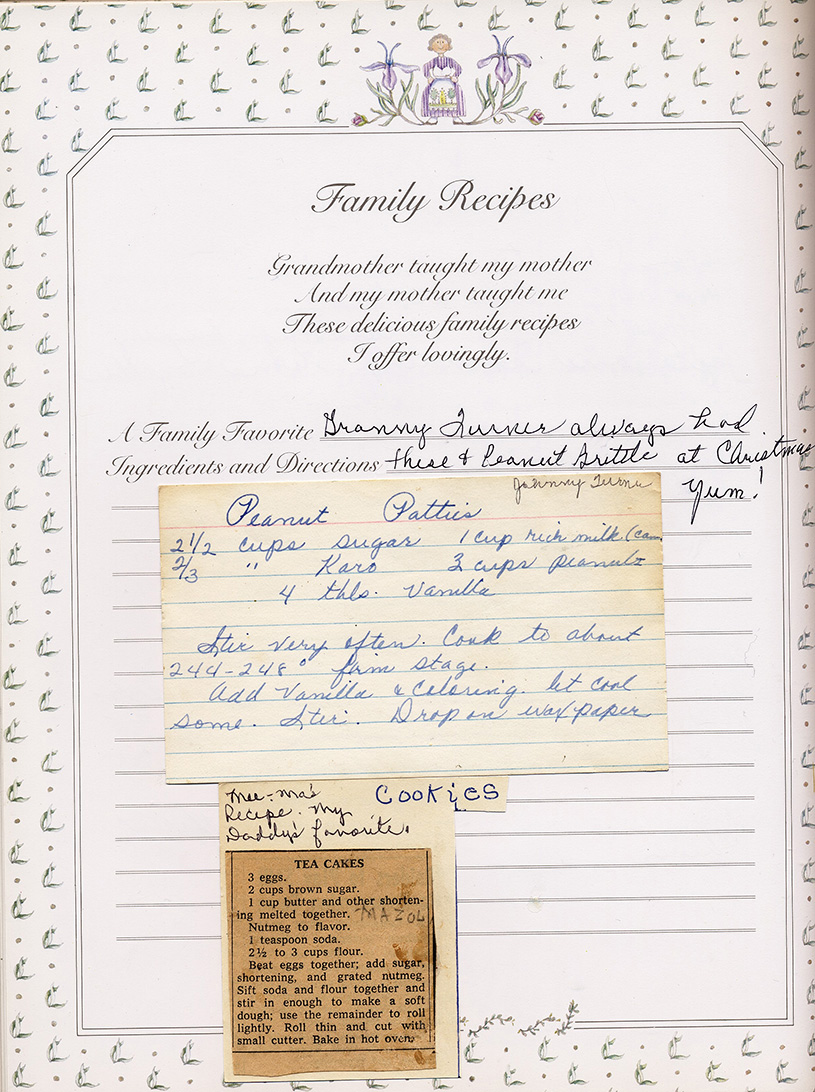 Family Recipes
Grandmother taught my mother
And my mother taught me
These delicious family recipes
I offer lovingly.
A Family Favorite Granny Turner always had
Ingredients and Directions these & Peanut Brittle at Christmas
Yum!
Peanut Patties
2 1/2 cups sugar 1 cup rich milk (can
2/3 " Karo 3 cups peanuts
4 tbls. Vanilla
Stir very often. Cook to about
244-248° firm stage.
Add Vanilla & Coloring. let cool
some. Stir. Drop on wax paper
Mee-Ma's
Recipe. My
Daddy's favorite.
COOKiES
TEA CAKES
3 eggs.
2 cups brown sugar.
1 cup butter and other shorten-
ing melted together. -MAZOL
Nutmeg to flavor.
1 teaspoon soda.
2½ to 3 cups flour.
Beat eggs together; add sugar,
shortening, and grated nutmeg.
Sift soda and flour together and
stir in enough to make a soft
dough; use the remainder to roll
lightly. Roll thin and cut with
small cutter. Bake in hot oven.